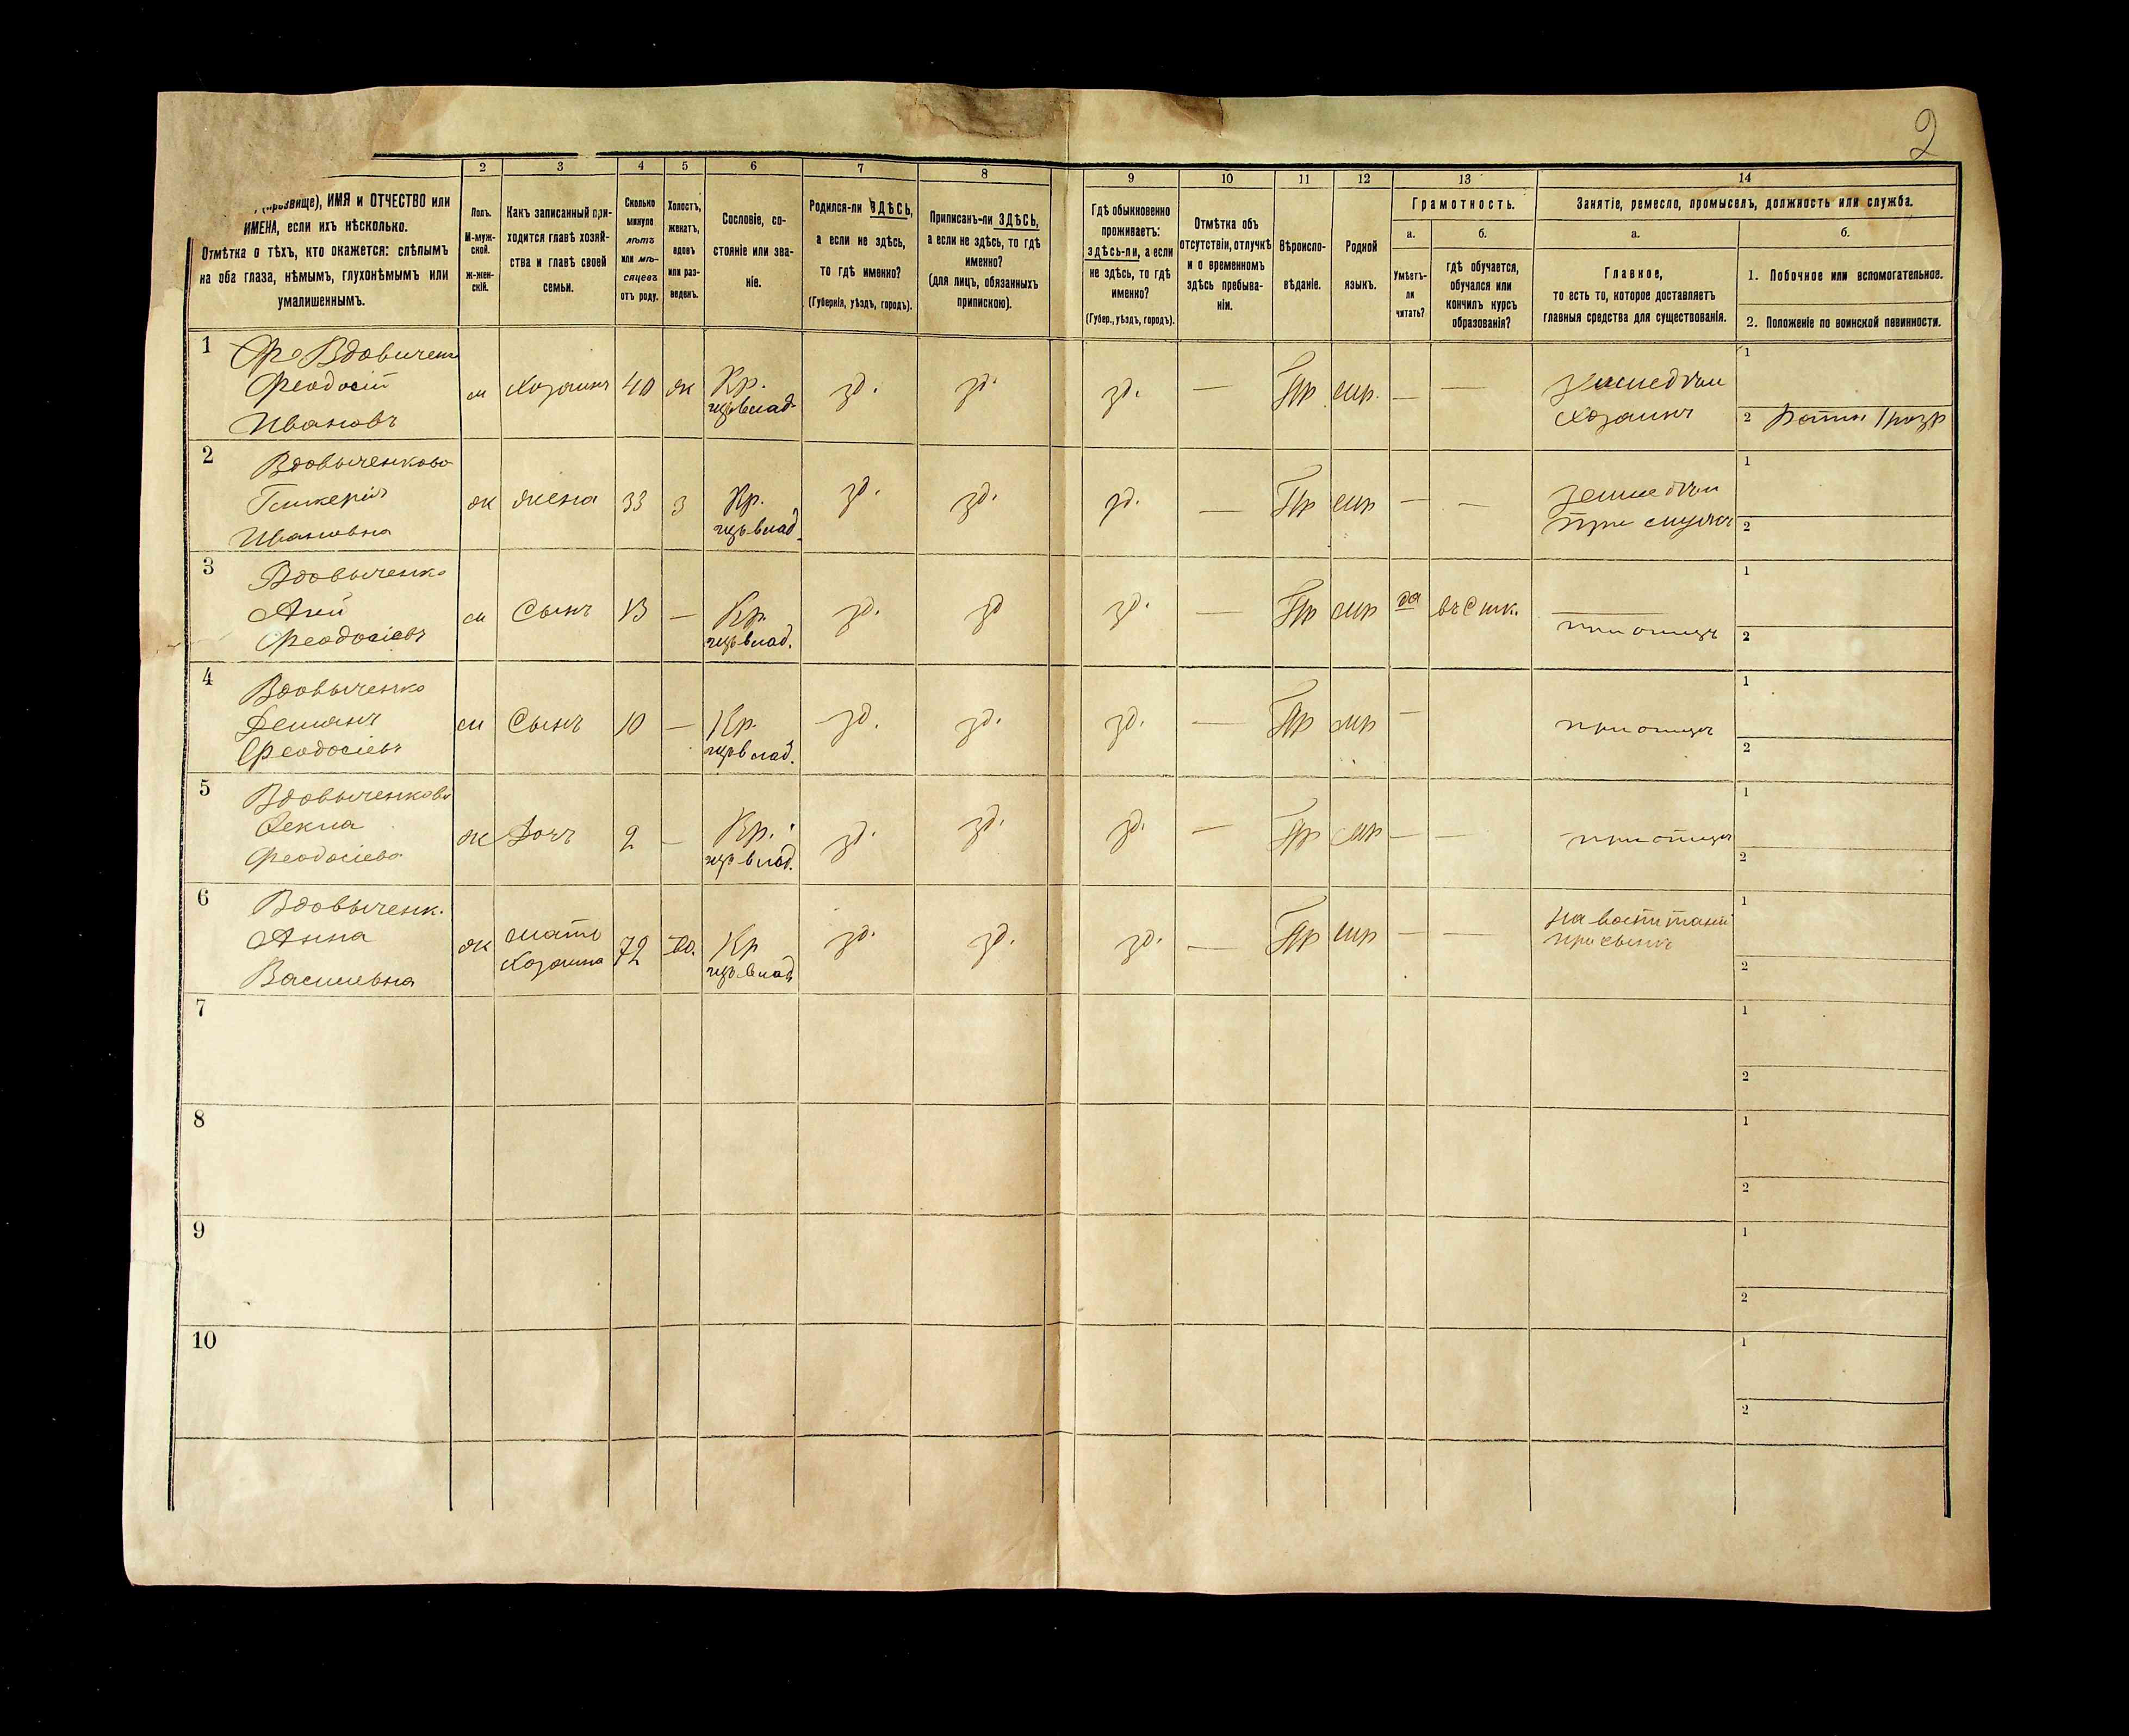 2
2 3 4 5 6 7 8 9 10 11 12 13 14
(прозвище), ИМЯ и ОТЧЕСТВО или
ИМЕНА, если ихъ нѣсколько.
Отмѣтка о тѣхъ, кто окажется: слѣпымъ
на оба глаза, нѣмымъ, глухонѣмымъ или
умалишеннымъ.
Полъ.
М-муж-
ской.
Ж-жен-
скій.
Какъ записанный при-
ходится главѣ хозяй-
ства и главѣ своей
семьи.
Сколько
минуло
лѣтъ
или мѣ-
сяцевъ
отъ роду.
Холостъ,
женатъ,
вдовъ
или раз-
веденъ.
Сословіе, со-
стояніе или зва-
ніе.
Родился-ли ЗДѢСЬ,
а если не здѣсь,
то гдѣ именно?
(Губернія, уѣздъ, городъ).
Приписанъ-ли ЗДѢСЬ,
а если не здѣсь, то гдѣ
именно?
(для лицъ, обязанныхъ
припискою).
Гдѣ обыкновенно
проживаетъ:
здѣсь-ли, а если
не здѣсь, то гдѣ
именно?
(Губер., уѣздъ, городъ).
Отмѣтка объ
отсутствіи, отлучкѣ
и о временномъ
здѣсь пребыва-
ніи.
Вѣроиспо-
вѣданіе.
Родной
языкъ.
Грамотность.
а. б.
Умѣетъ-
ли
читать?
гдѣ обучается,
обучался или
кончилъ курсъ
образованія?
Занятіе, ремесло, промыселъ, должность или служба.
а. б.
Главное,
то есть то, которое доставляетъ
главныя средства для существованія.
1. Побочное или вспомогательное.
2. Положеніе по воинской повинности.
1
Вдовиченко
Феодосій
Ивановъ
м Хозяинъ 40 ж Кр. зд. зд. зд. — Пр мр. — —
Хозяинъ
1
2 Ратн 1 разр
2
Вдовыченкова
Гликерія
Ивановна
ж жена 33 з Кр. зд. зд. зд. — Пр мр — —
1
2
3
Вдовыченко
Феодосіевъ
м Сынъ 13 — Кр. зд. зд зд. — Пр мр да
при отцѣ
1
2
4
Вдовыченко
Демьянъ
Феодосіевъ
м Сынъ 10 — Кр. зд. зд. зд. — Пр мр —
при отцѣ
1
2
5
Вдовыченкова
Текла
Феодосіева
ж Дочь 2 — Кр. зд. зд. зд. — Пр мр — —
при отцѣ
1
2
6
Вдовыченк.
Анна
Васильевна
ж мать
Хозяина
72 вд. Кр зд. зд. зд. — Пр мр — —
при сынѣ
1
2
7
1
2
8
1
2
9
1
2
10
1
2